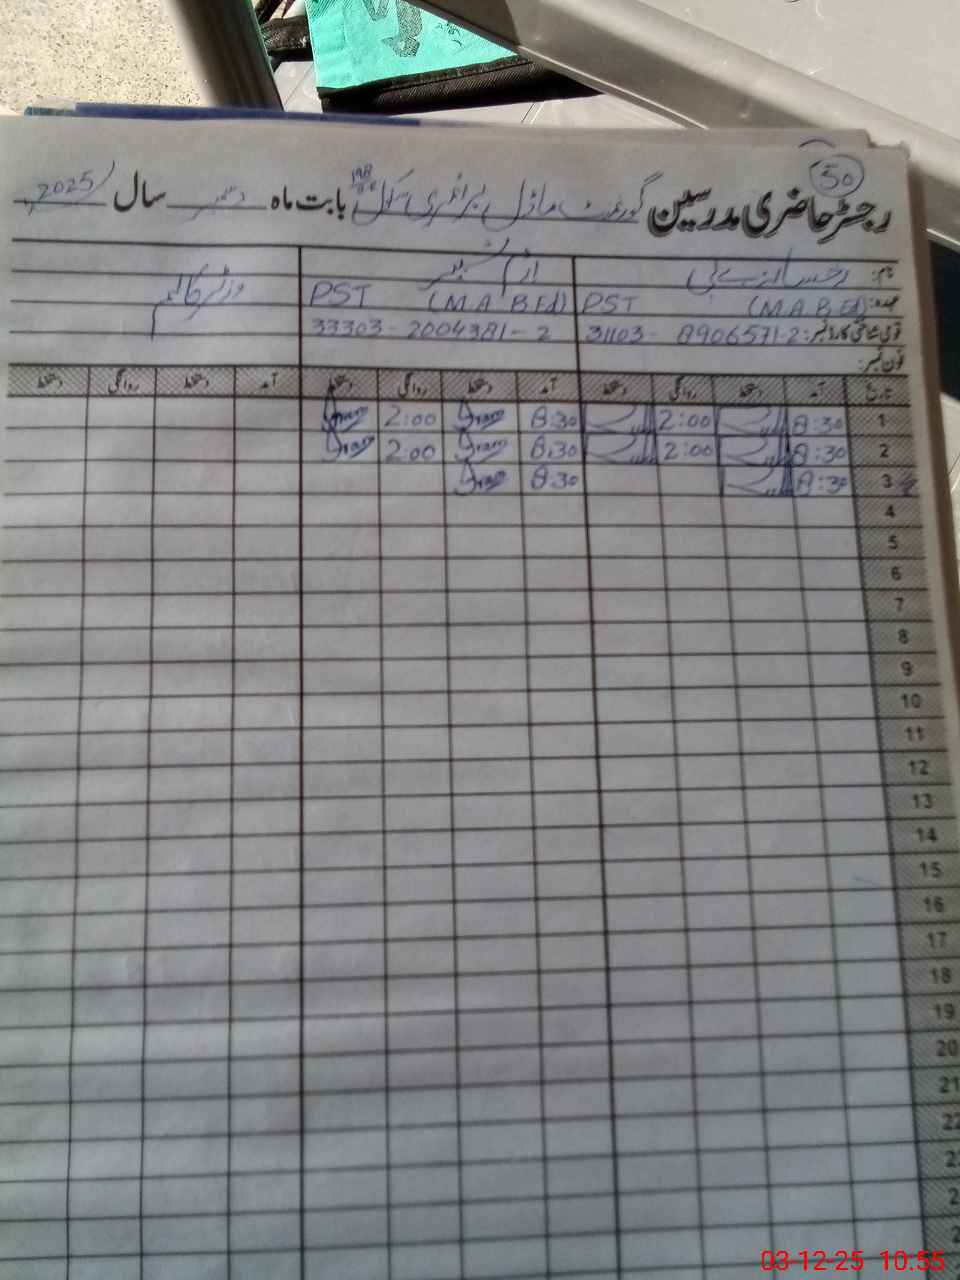 50
رجسٹر حاضری مدرسین گورنمنٹ ماڈل پرائمری سکول 198 بابت ماہ دسمبر سال 2025
نام:
ارم شبیر
وزٹر کالم
عہدہ: PST (M.A B.Ed) PST (M.A B.Ed)
قومی شناختی کارڈ نمبر: 31103-8906571-2 33303-2004381-2
فون نمبر:
تاریخ آمد دستخط روانگی دستخط آمد دستخط روانگی دستخط آمد دستخط روانگی دستخط
1 8:30 2:00 8:30 Iram 2:00 Iram
2 8:30 2:00 8:30 Iram 2:00 Iram
3 8:30 8:30 Iram
4
5
6
7
8
9
10
11
12
13
14
15
16
17
18
19
20
21
22
03-12-25 10:55